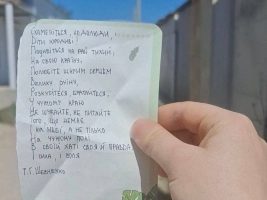 СХАМЕНІТЬСЯ, НЕДОЛЮДИ,
ДІТИ ЮРОДИВІ!
ПОДИВІТЬСЯ НА РАЙ ТИХИЙ,
НА СВОЮ КРАЇНУ,
ПОЛЮБІТЕ ЩИРИМ СЕРЦЕМ
ВЕЛИКУ РУЇНУ,
РОЗКУЙТЕСЯ, БРАТАЙТЕСЯ,
У ЧУЖОМУ КРАЮ
НЕ ШУКАЙТЕ, НЕ ПИТАЙТЕ
ТОГО, ЩО НЕМАЄ
І НА НЕБІ, А НЕ ТІЛЬКО
НА ЧУЖОМУ ПОЛІ
В СВОЇЙ ХАТІ СВОЯ Й ПРАВДА
І СИЛА, І ВОЛЯ
Т.Г. ШЕВЧЕНКО